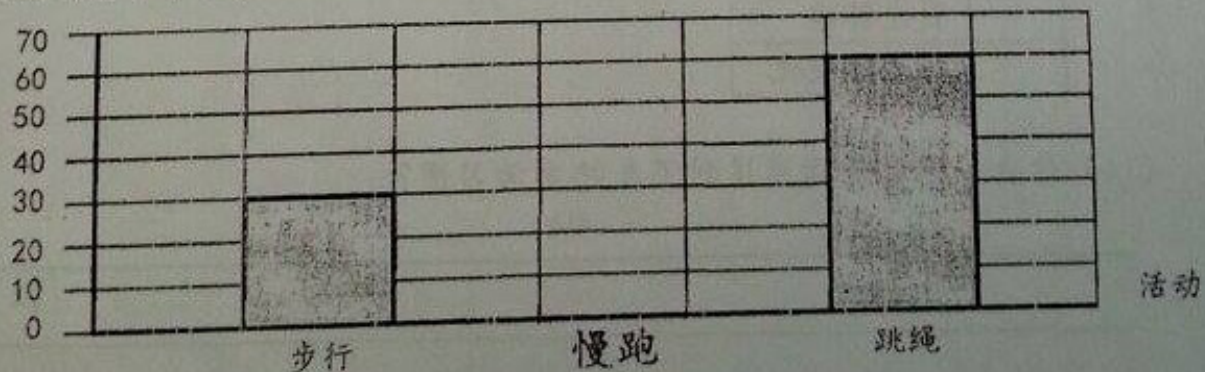 70
60
50
40
30
20
10
0
活动
步行 慢跑 跳绳